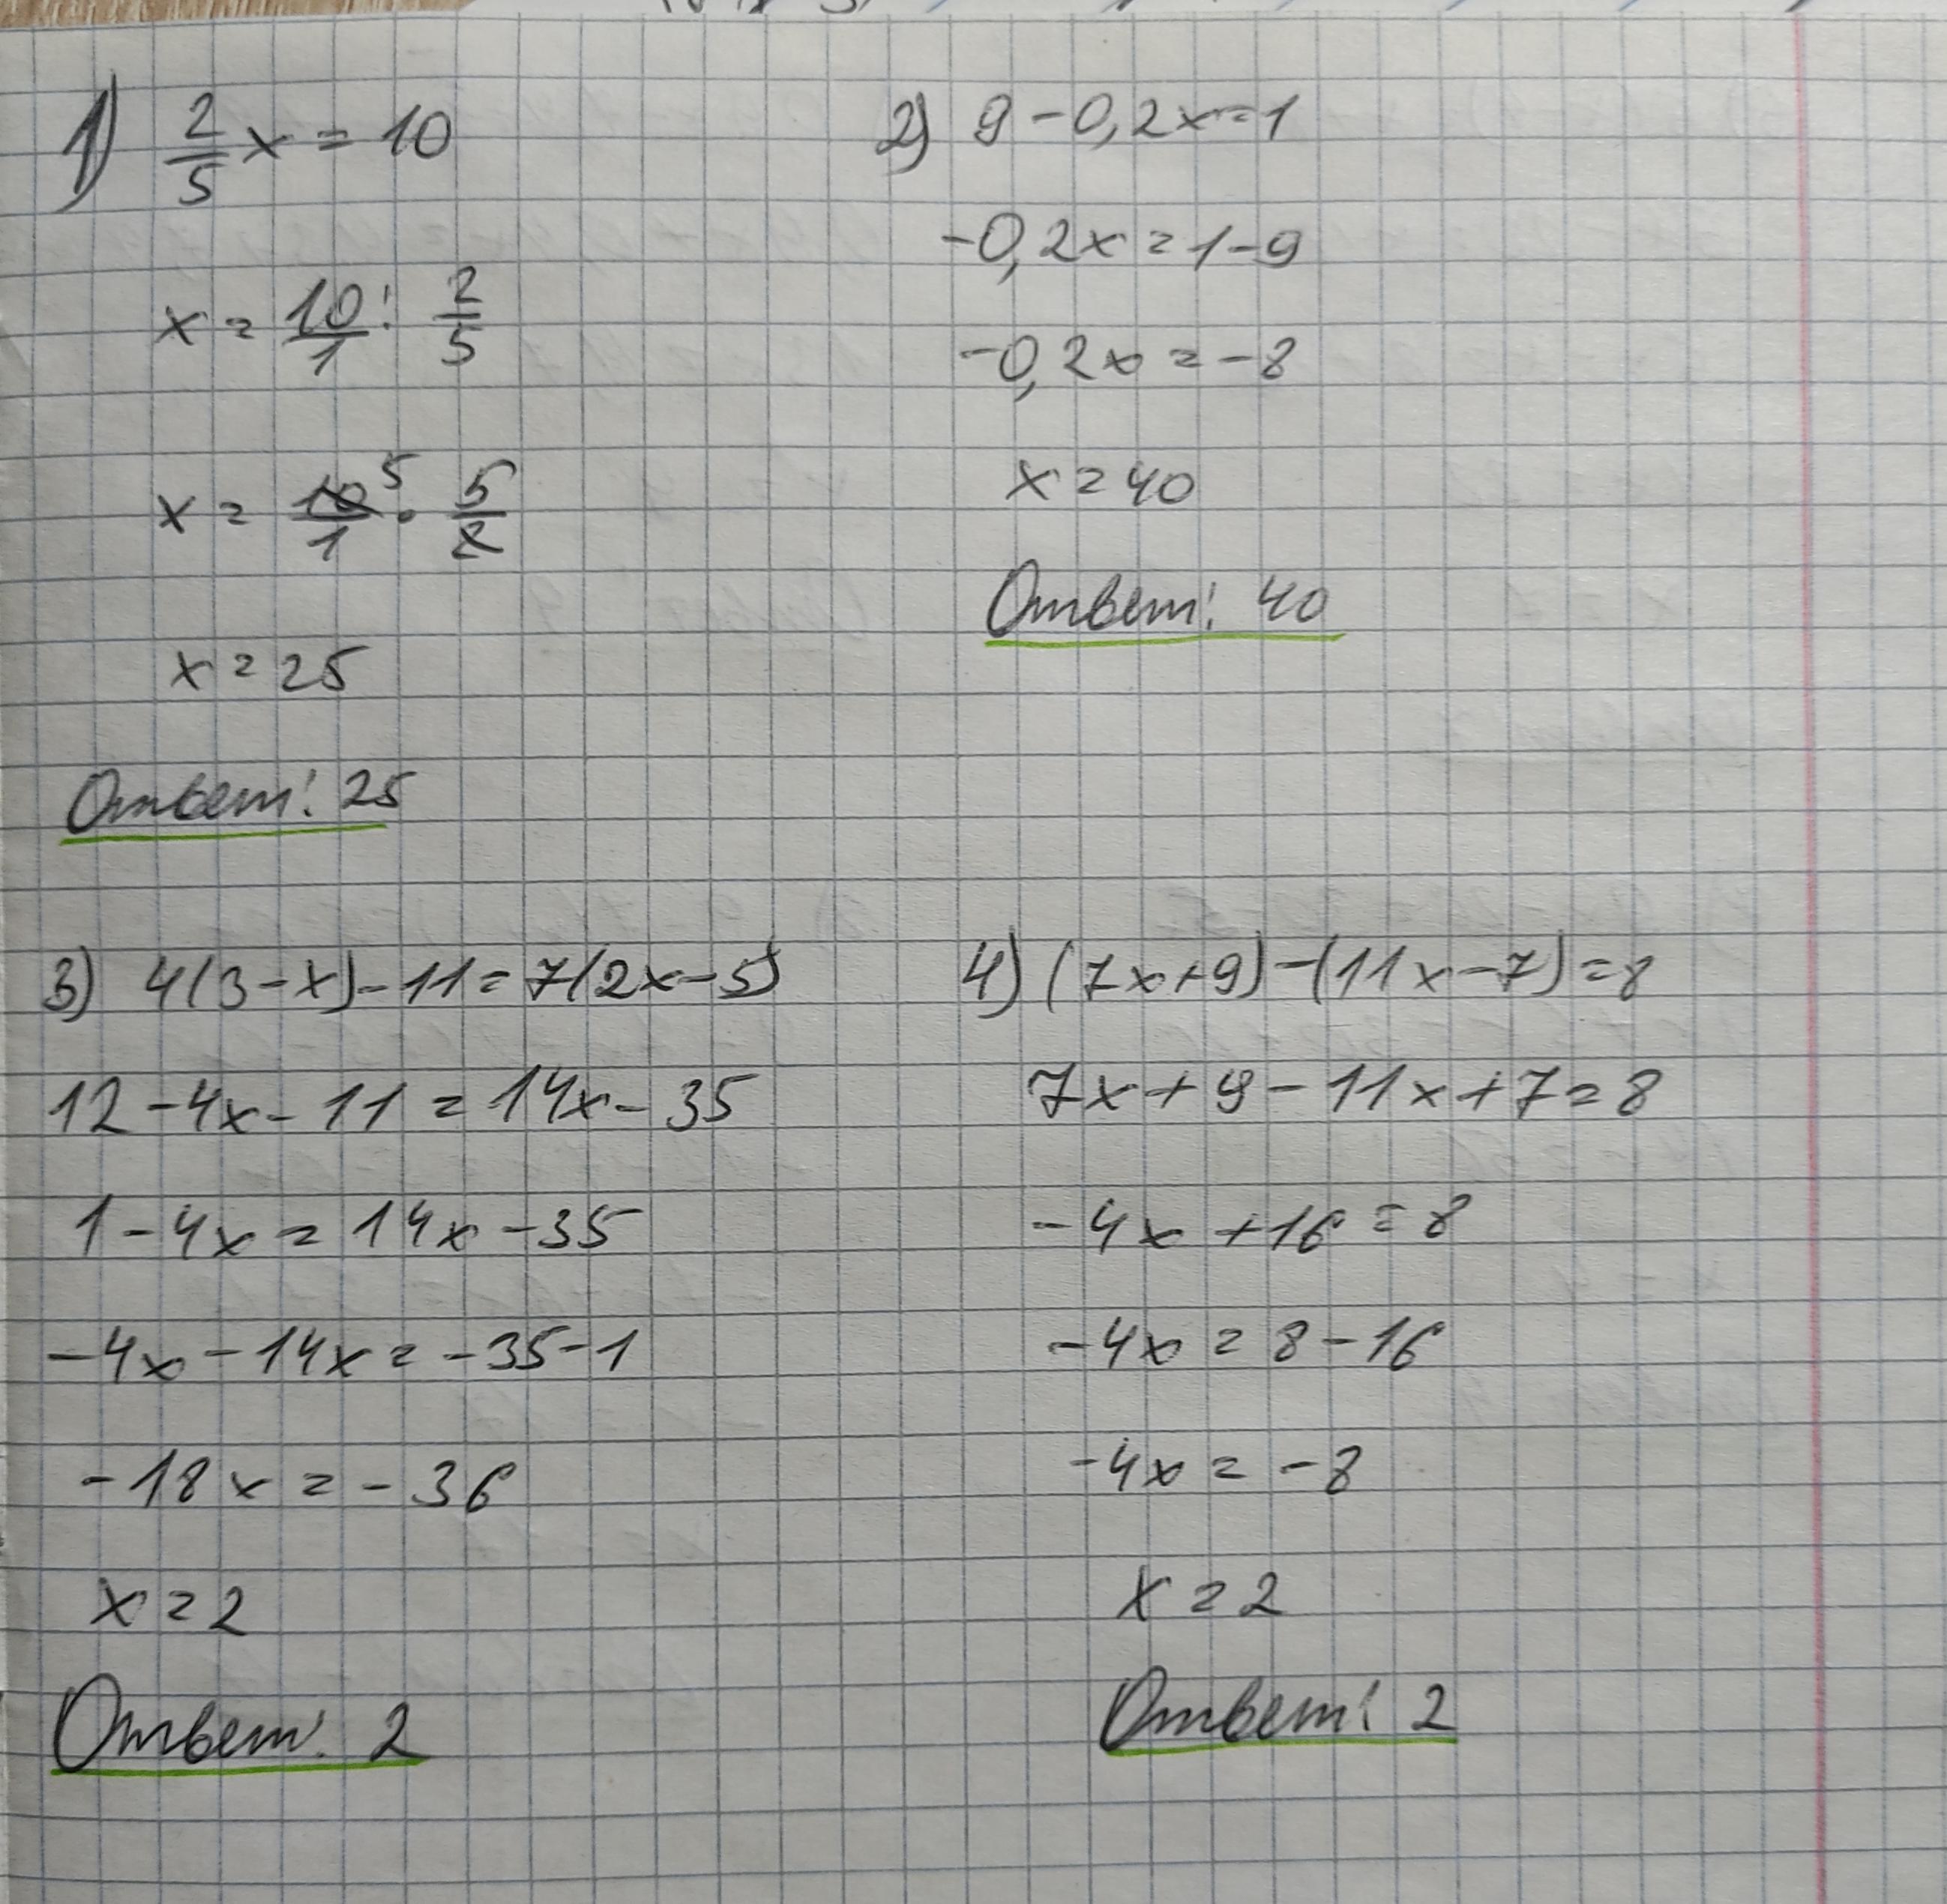 1) 2/5 x = 10
x = 10/1 : 2/5
x = 10/1 5 · 5/2
x = 25
Ответ: 25
2) 9 - 0,2x = 1
-0,2x = 1 - 9
-0,2x = -8
x = 40
Ответ: 40
3) 4(3 - x) - 11 = 7(2x - 5)
12 - 4x - 11 = 14x - 35
1 - 4x = 14x - 35
-4x - 14x = -35 - 1
-18x = -36
x = 2
Ответ: 2
4) (7x + 9) - (11x - 7) = 8
7x + 9 - 11x + 7 = 8
-4x + 16 = 8
-4x = 8 - 16
-4x = -8
x = 2
Ответ: 2